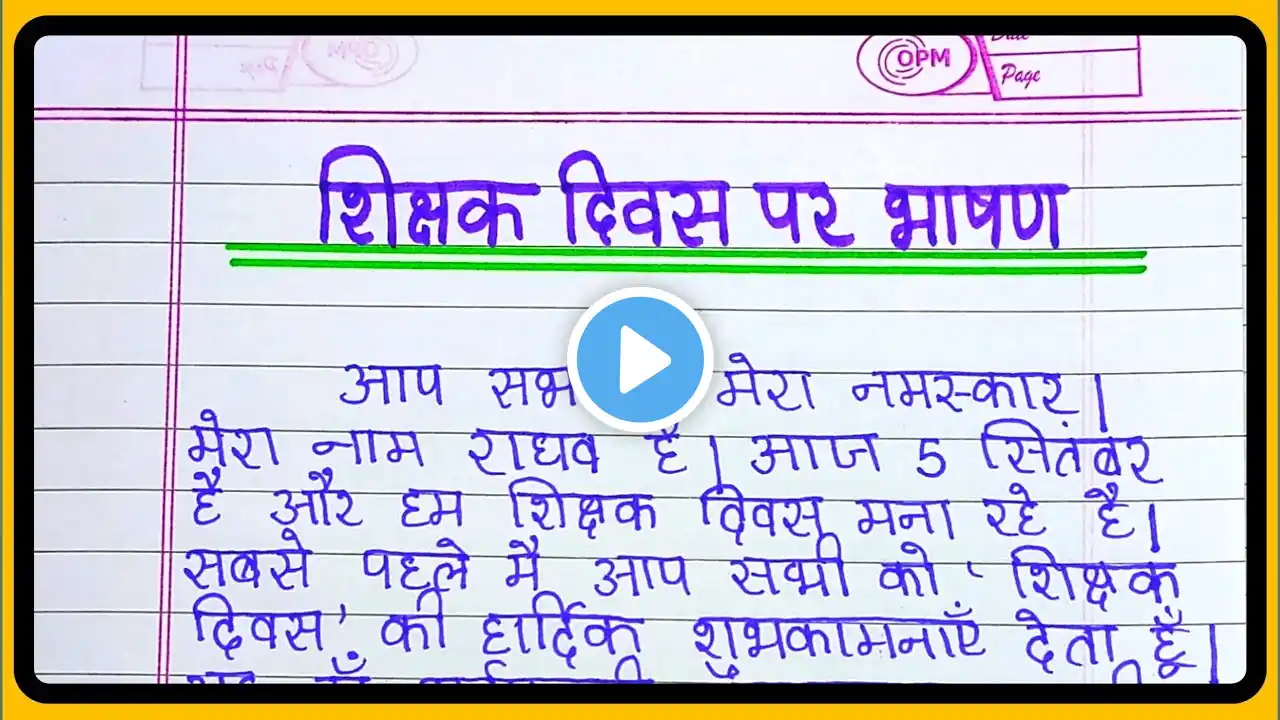 OPM
Page
शिक्षक दिवस पर भाषण
आप मेरा नमस्कार।
मेरा नाम राघव है। आज 5 सितंबर
है और हम शिक्षक दिवस मना रहे है।
सबसे पहले मै आप सभी को ' शिक्षक
दिवस' की हार्दिक शुभकामनाएँ देता हूँ।